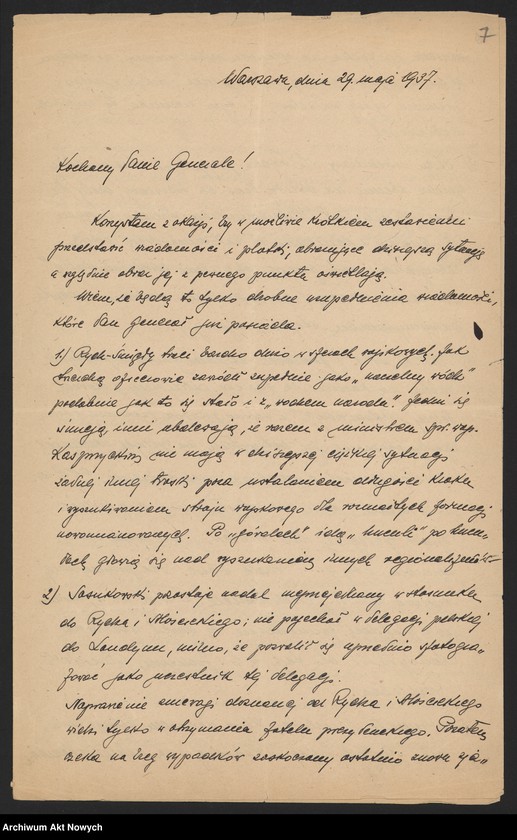 7
Warszawa, dnia 29. maja 1937.
Kochany Panie Generale!
Korzystam z okazji, by w możliwie krótkiem zestawieniu
przedstawić wiadomości i plotki, obrazujące dzisiejszą sytuację
a względnie obraz jej z pewnego punktu oświetlają.
Wiem, że będą to tylko drobne uzupełnienia wiadomości,
które Pan Generał już posiada.
1) Rydz-Śmigły traci bardzo dużo w sferach wojskowych. Jak
twierdzą oficerowie zawiódł zupełnie jako „naczelny wódz"
podobnie jak to się stało i z „wodzem narodu". Jedni się
śmieją, inni ubolewają, że razem z ministrem spr. wojsk.
Kasprzyckim nie mają w dzisiejszej ciężkiej sytuacji
żadnej innej troski poza ustalaniem długości kroku
i wyszukiwaniem stroju wojskowego dla rozmaitych formacji
nowomianowanych. Po „góralach" idą „huculi" po hucu-
łach głowią się nad wyszukaniem innych regionalizmów
2) Sosnkowski pozostaje nadal nieprzejednany w stosunku
do Rydza i Mościckiego; nie pojechał w delegacji polskiej
do Londynu, mimo, że pozwolił się uprzednio sfotogra-
fować jako uczestnik tej delegacji.
Naprawienie zniewagi doznanej od Rydza i Mościckiego
widzi tylko w otrzymaniu fotelu prezydenckiego. Pozatem
czeka na bieg wypadków zaskoczony ostatnio znowu zja-
Archiwum Akt Nowych